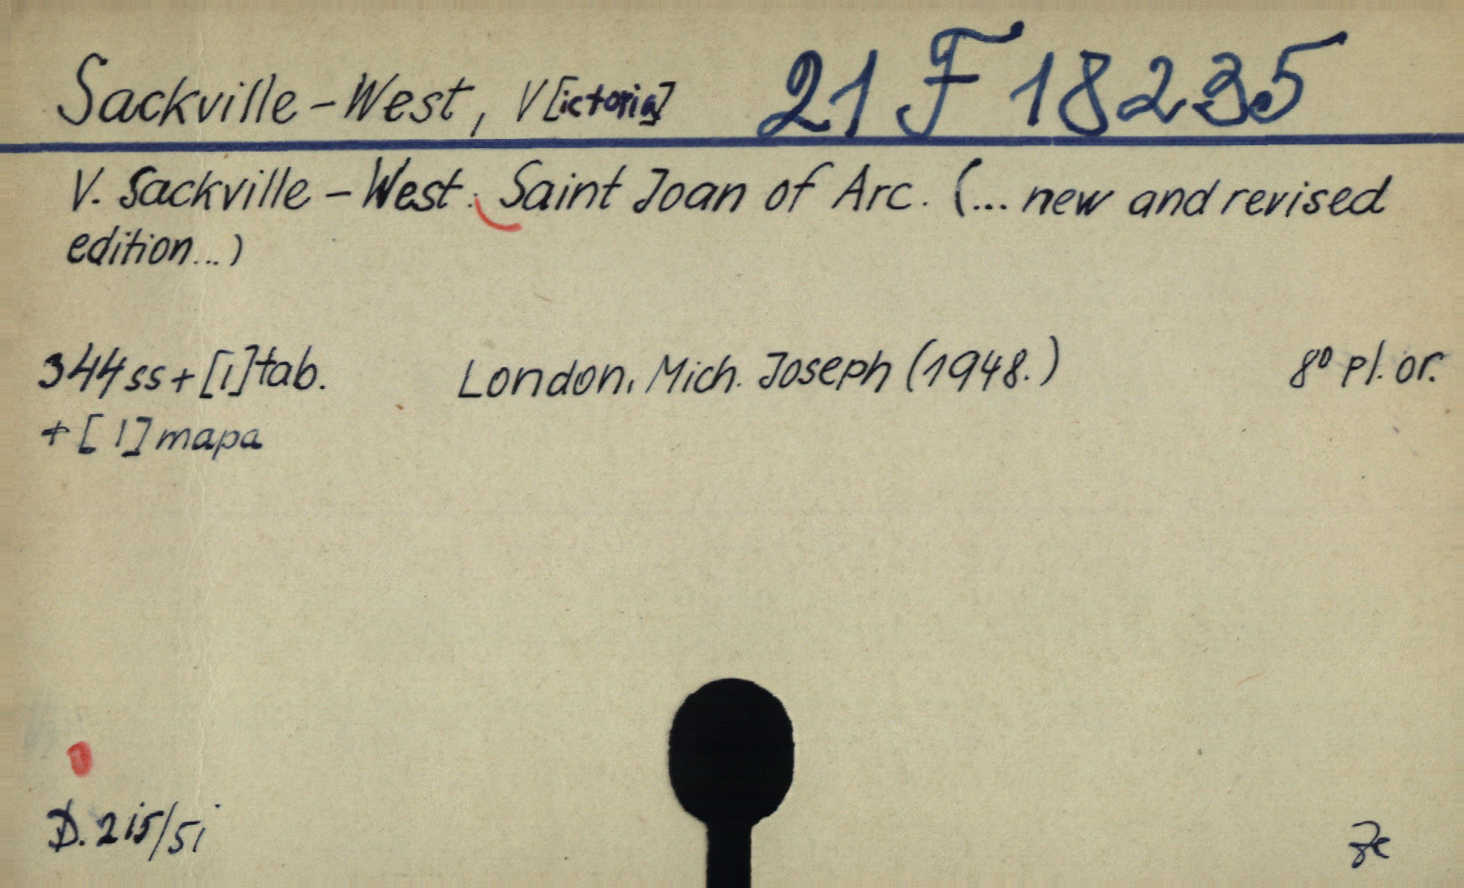 Sackville-West, V[ictoria] 21 F 18235
V. Sackville-West: Saint Joan of Arc. (... new and revised
edition...)
344 ss + [1] tab. London, Mich. Joseph (1948.) 8° pl. or.
+ [1] mapa
D. 215/51